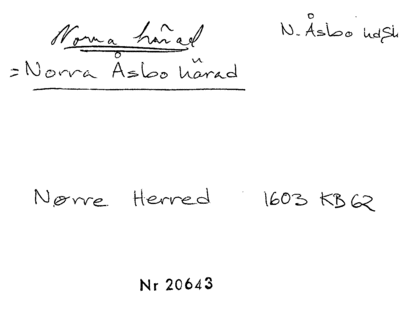 Norra härad
N. Åsbo hdsk
= Norra Åsbo härad
Nørre Herred 1603 KB 62
Nr 20643